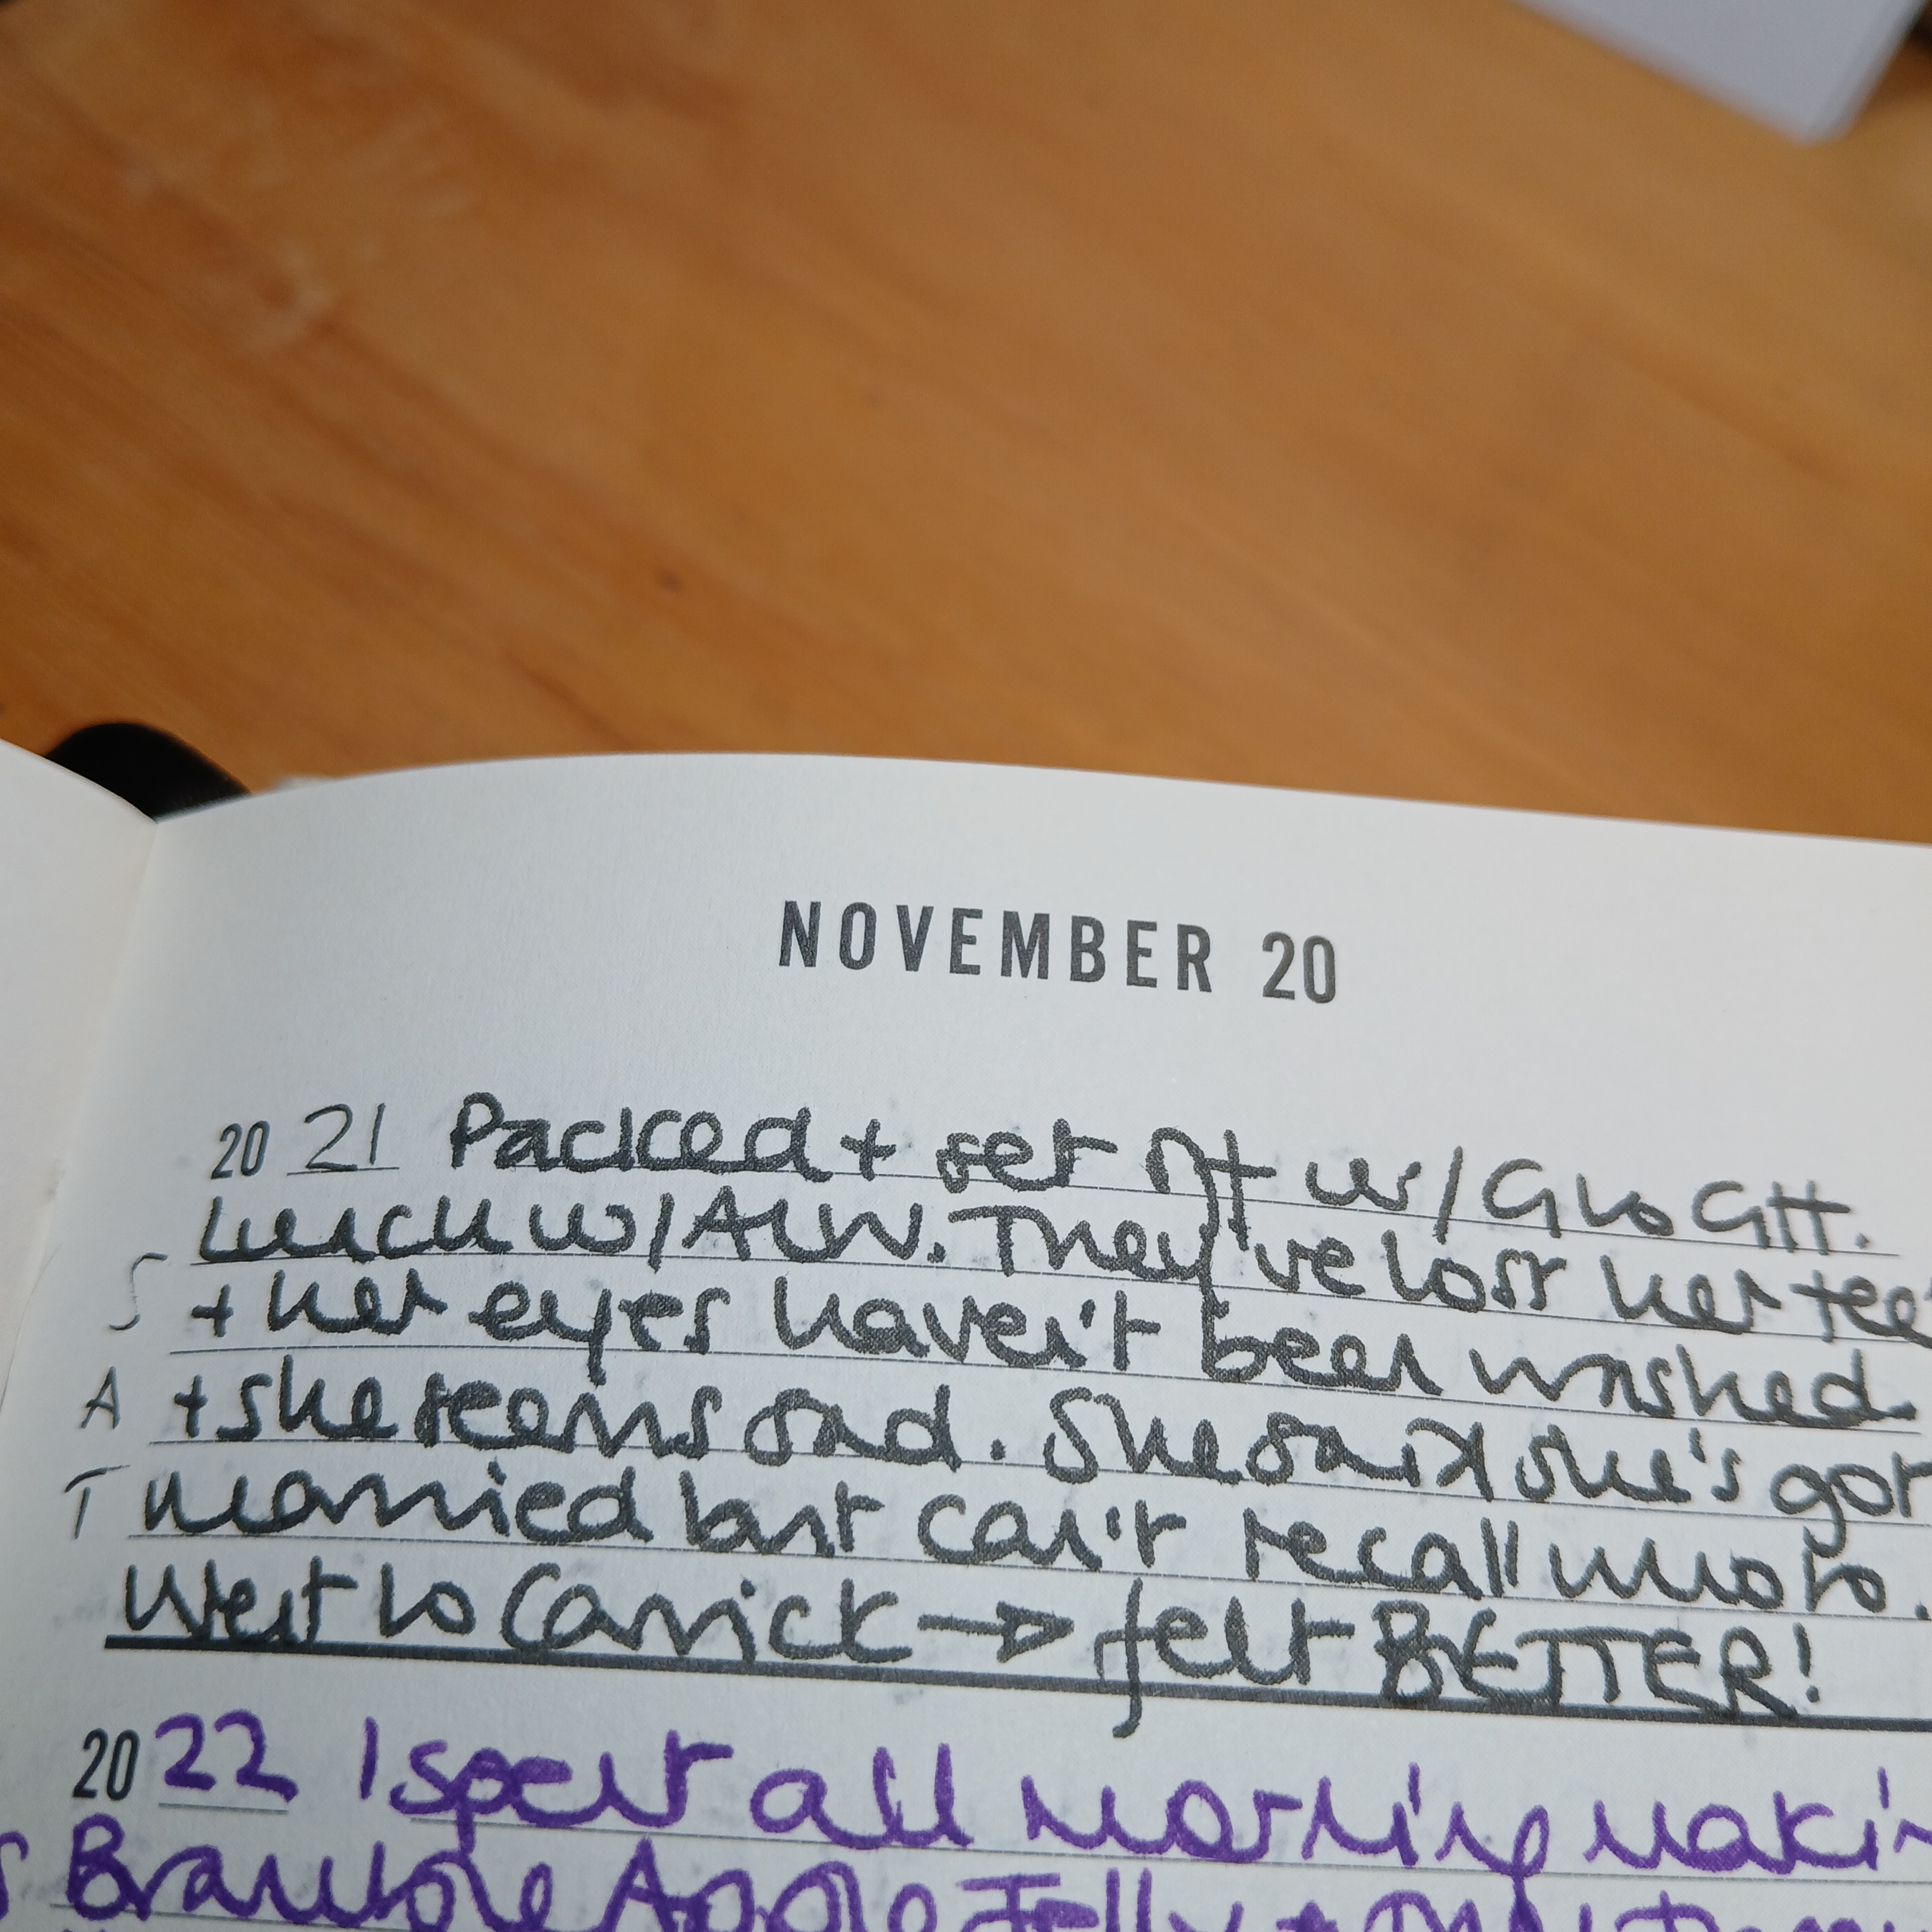 NOVEMBER 20
20 21 Packed + set off w/ G to GH.
Lunch w/ ALW. They've lost her tee
S + her eyes haven't been washed.
A + she seems sad. She said she's got
T married but can't recall who to.
Went to Carrick → felt BETTER!
20 22 I spent all morning makin
S Bramble Apple Jelly +